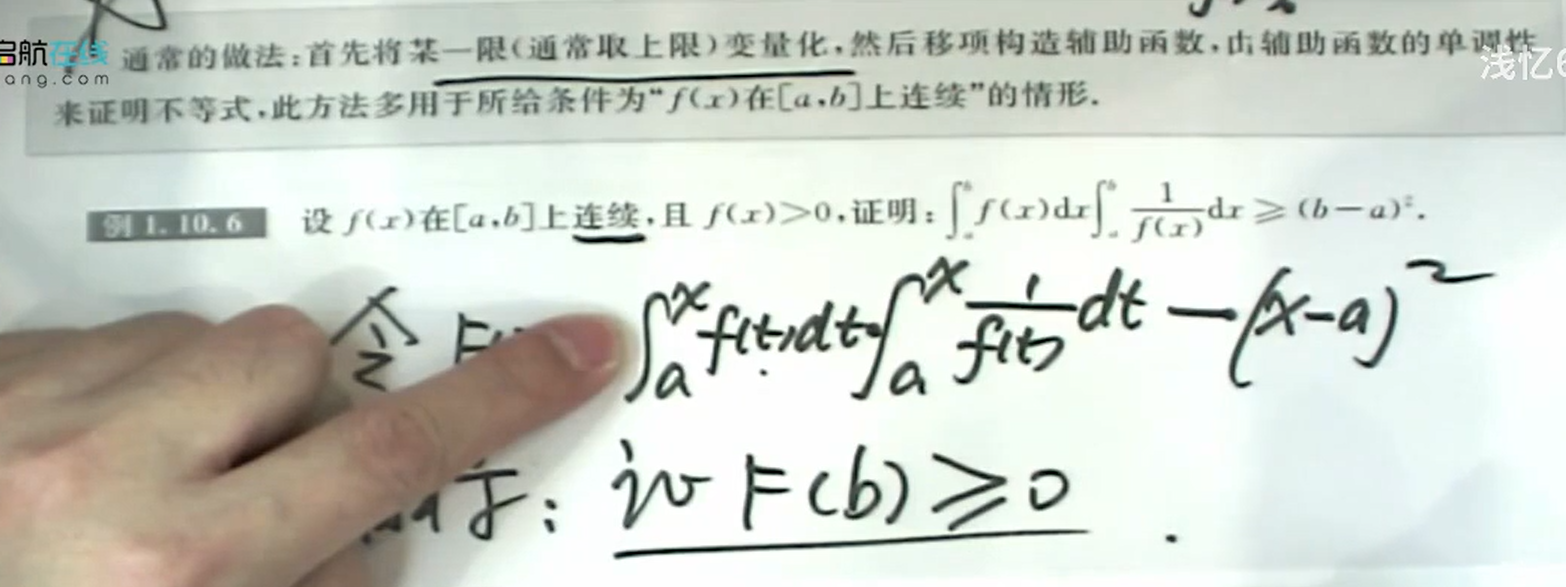 启航在线
ang.com
通常的做法:首先将某一限(通常取上限)变量化,然后移项构造辅助函数,由辅助函数的单调性
浅忆6
来证明不等式,此方法多用于所给条件为“f(x)在[a,b]上连续”的情形.
例 1.10.6 设 f(x)在[a,b]上连续,且 f(x)>0,证明:∫_a^b f(x)dx∫_a^b 1/f(x) dx ≥ (b-a)².
令 F ∫_a^x f(t)dt·∫_a^x 1/f(t) dt -(x-a)²
于: 证 F(b) ≥ 0 .